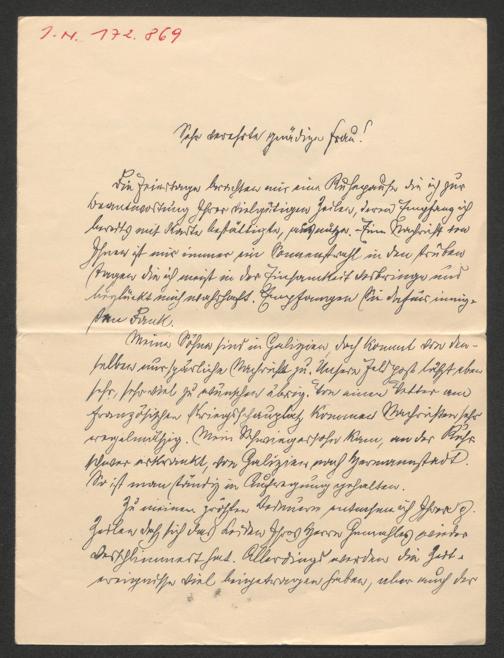 I. N. 172.869
Sehr verehrte gnädige Frau!
Die Feiertage brachten mir eine Ruhepause die ich zur
Beantwortung Ihrer vielgütigen Zeilen, deren Empfang ich
bereits mit Karte bestättigte, ausnütze. Eine Nachricht von
Ihnen ist mir immer ein Sonnenstrahl in den trüben
Tagen die ich meist in der Einsamkeit verbringe und
beglückt mich wahrhaft. Empfangen Sie dafür innig-
sten Dank.
Meine Söhne sind in Galizien, doch kommt von den-
selben nur spärliche Nachricht zu. Unsere Feldpost läßt eben
sehr, sehr viel zu wünschen übrig. Von einem Vetter am
französischen Kriegsschauplatz kommen Nachrichten sehr
regelmäßig. Mein Schwiegersohn kam, an der Ruhr
schwer erkrankt, von Galizien nach Hermannstadt.
So ist man ständig in Aufregung gehalten.
Zu meinem größten Bedauern entnehme ich Ihren g.
Zeilen daß sich das Leiden Ihres Herrn Gemahles wieder
verschlimmert hat. Allerdings werden die Zeit-
ereignisse viel beigetragen haben, aber auch der